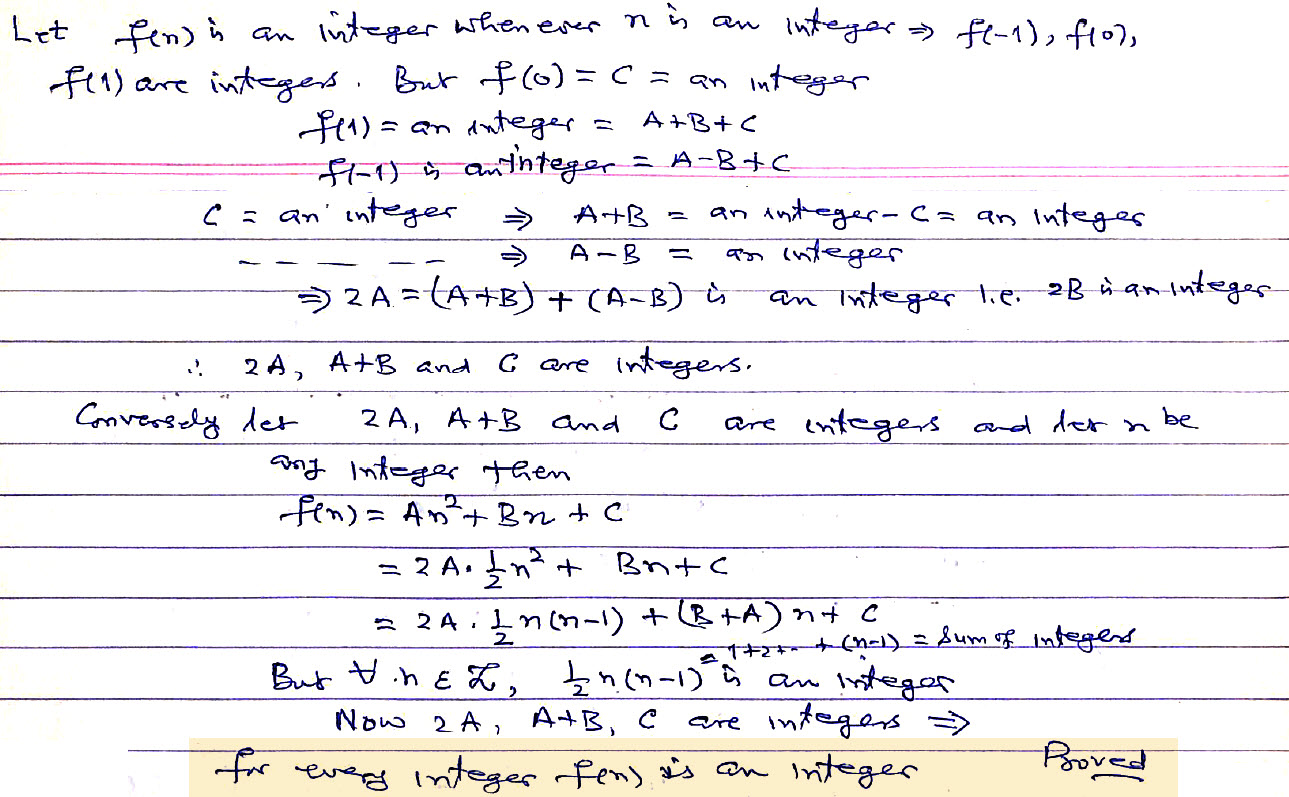 Let f(n) is an integer whenever n is an integer ⇒ f(-1), f(0),
f(1) are integers. But f(0) = C = an integer
f(1) = an integer = A+B+C
f(-1) is an integer = A-B+C
C = an integer ⇒ A+B = an integer - C = an integer
— — — — — ⇒ A-B = an integer
⇒ 2A = (A+B) + (A-B) is an integer i.e. 2B is an integer
∴ 2A, A+B and C are integers.
Conversely let 2A, A+B and C are integers and let n be
any integer then
f(n) = An² + Bn + C
= 2A. ½n² + Bn + C
= 2A. ½n(n-1) + (B+A)n + C
= 1+2+.. + (n-1) = Sum of integers
But ∀ n ∈ Z, ½n(n-1) is an integer
Now 2A, A+B, C are integers ⇒
for every integer f(n) is an integer Proved